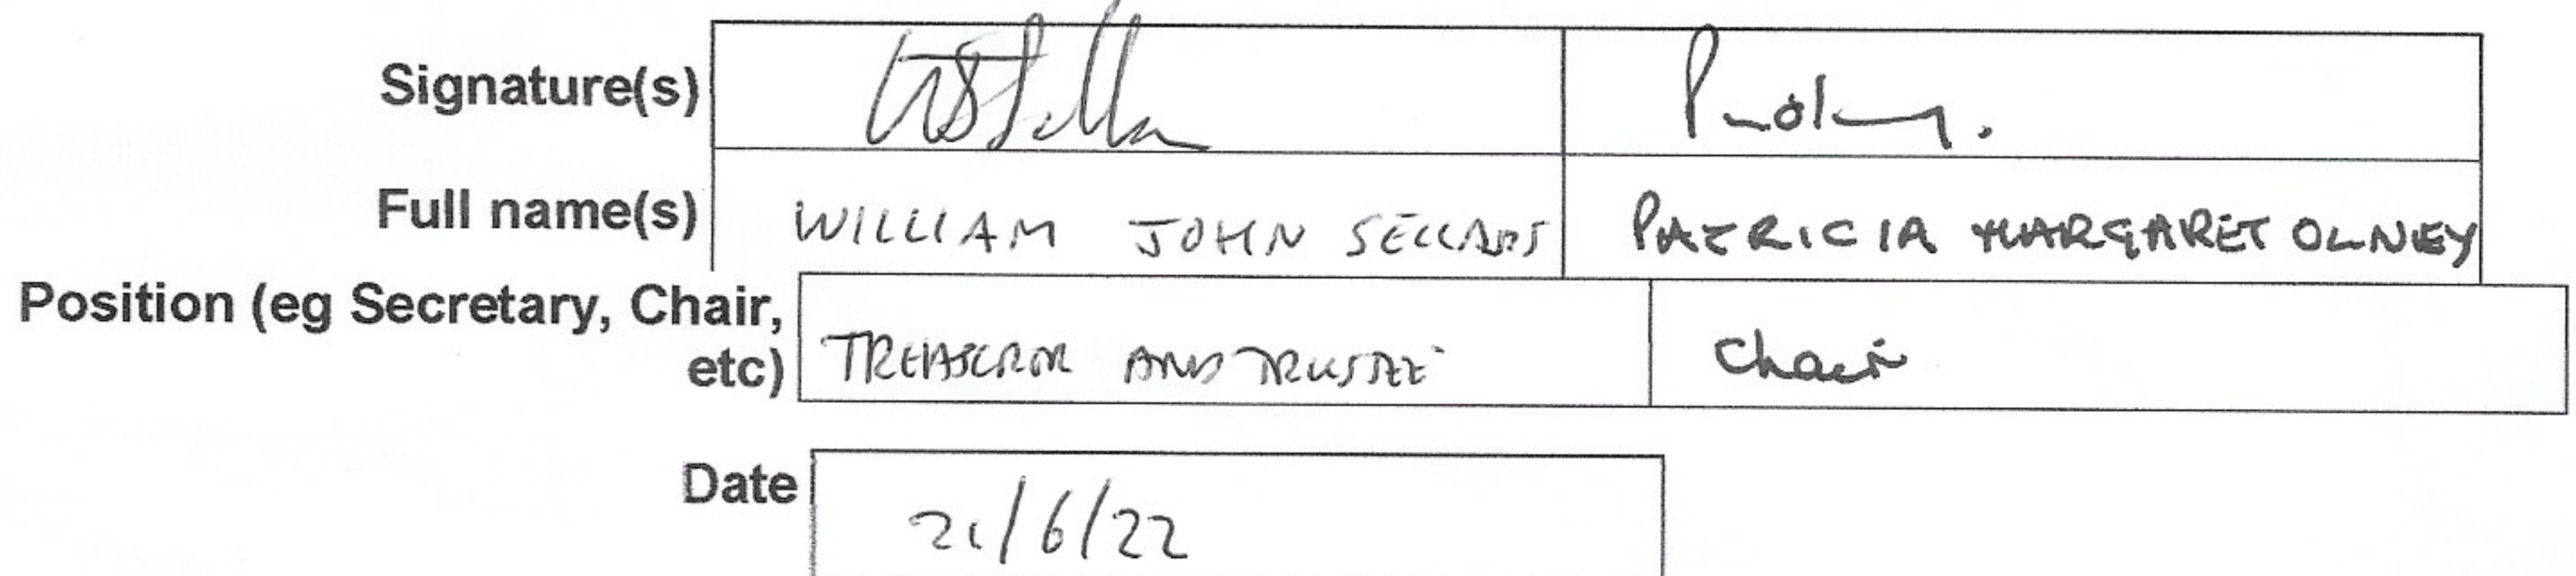 Signature(s)
Full name(s) WILLIAM JOHN SELLARS PATRICIA MARGARET OLNEY
Position (eg Secretary, Chair,
etc) TREASUROR AND TRUSTEE Chair
Date
21/6/22